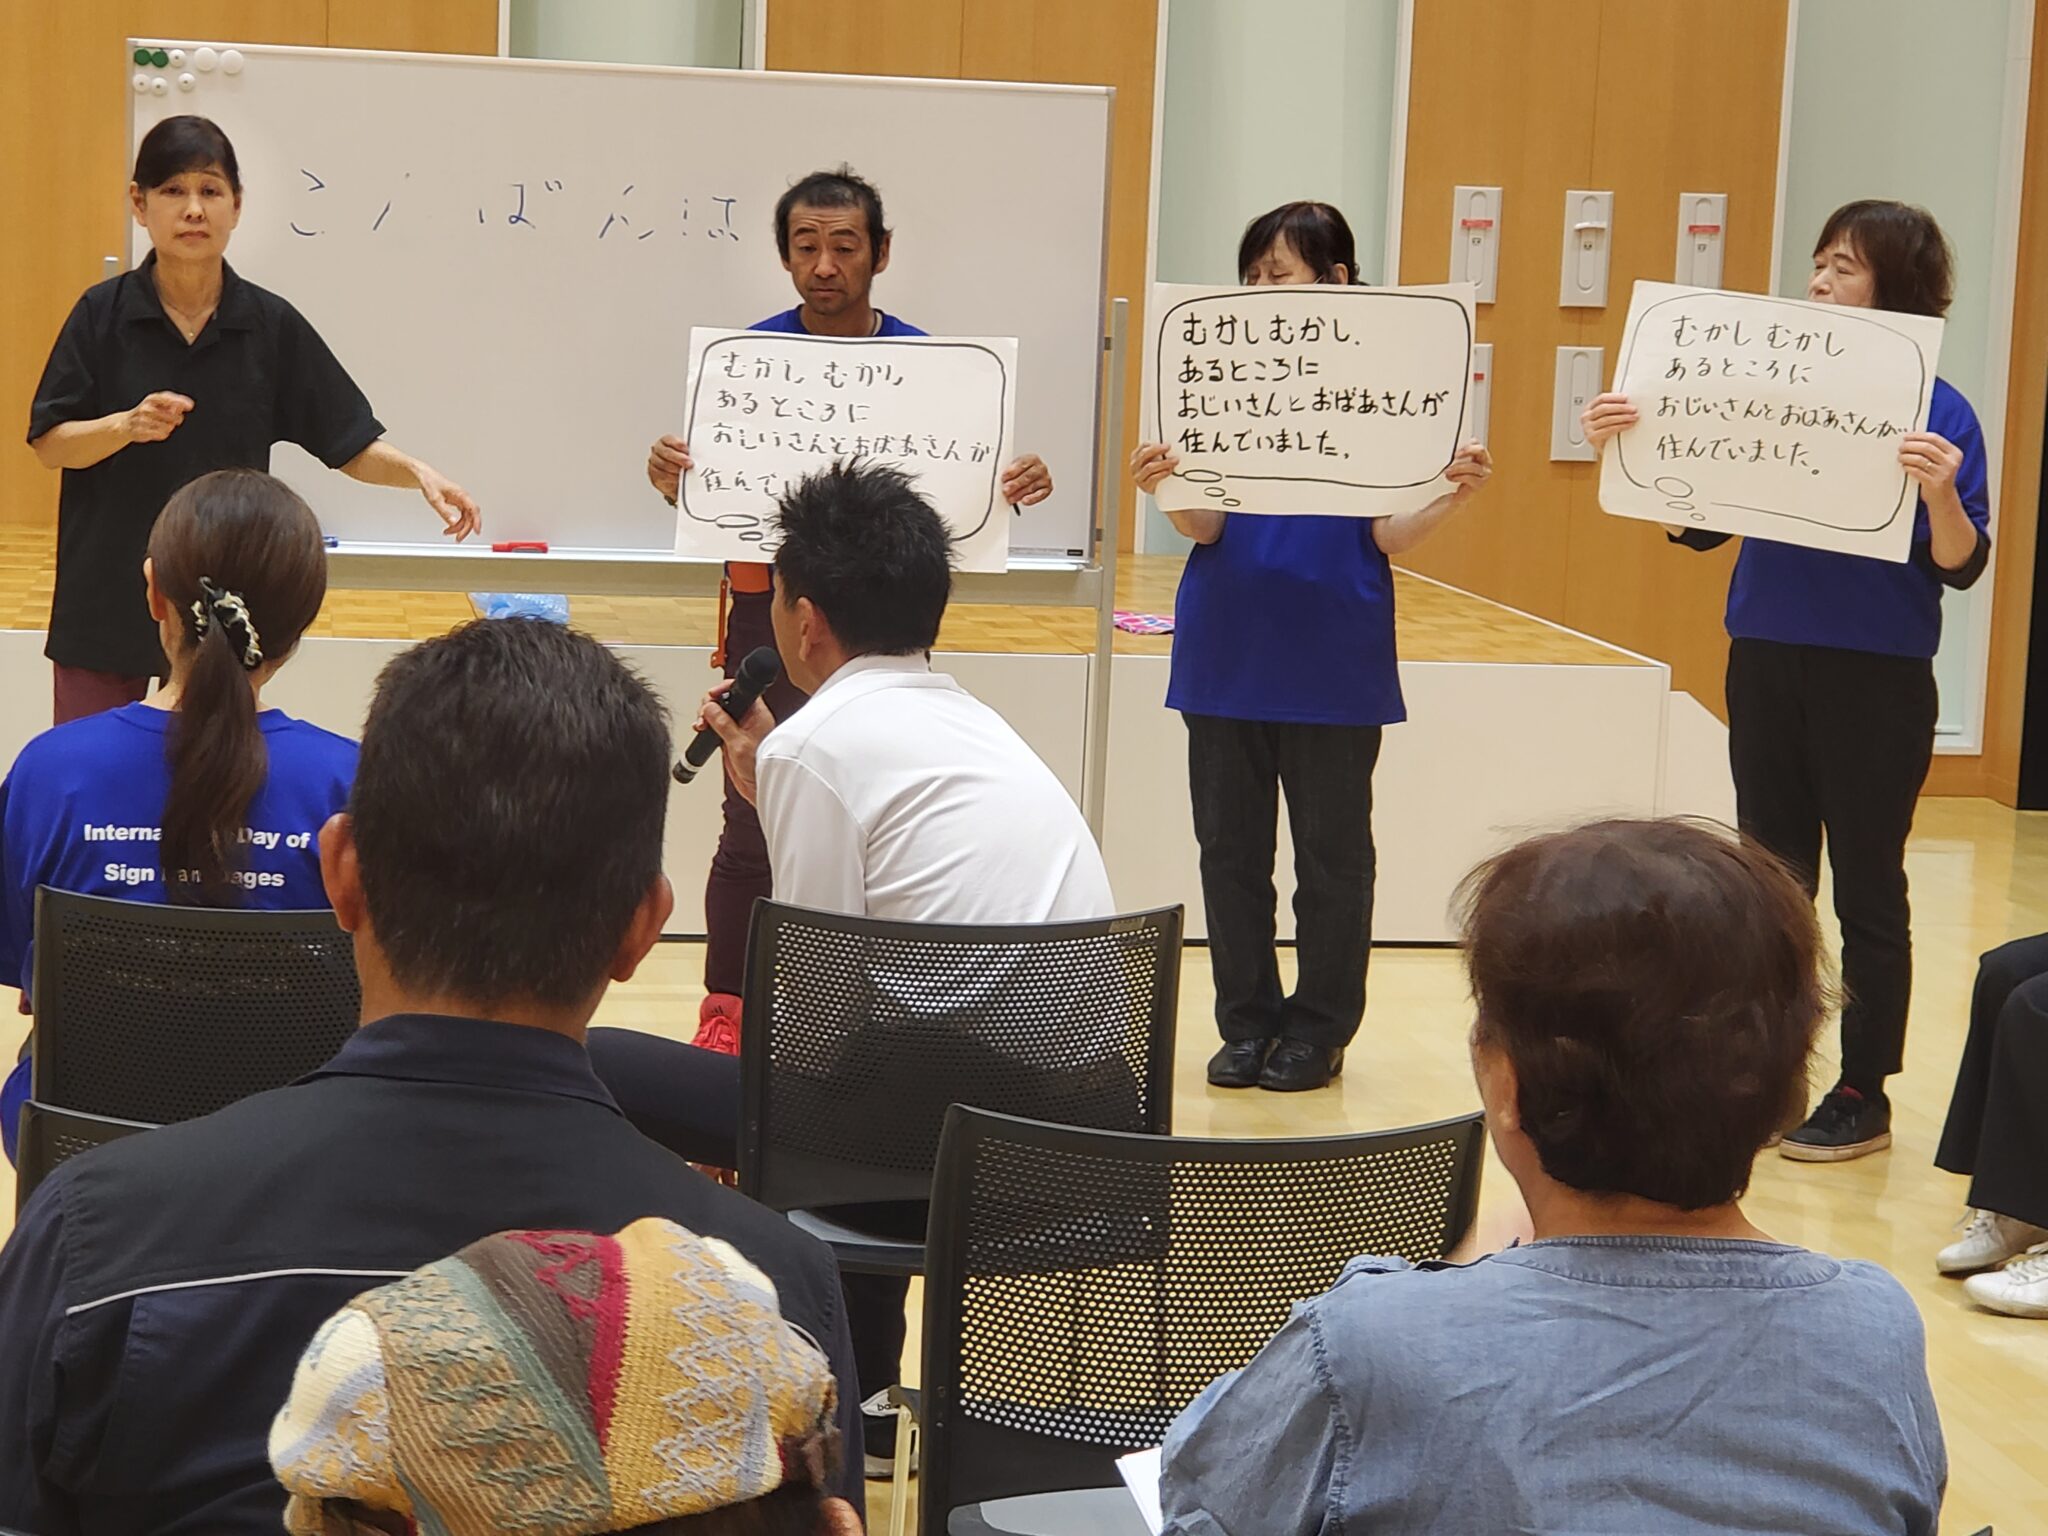 こんばんは
むかし むかし
あるところに
おじいさんとおばあさんが
むかしむかし、
あるところに
おじいさんとおばあさんが
住んでいました。
むかし むかし
あるところに
おじいさんとおばあさんが
住んでいました。
International Day of
Sign Languages